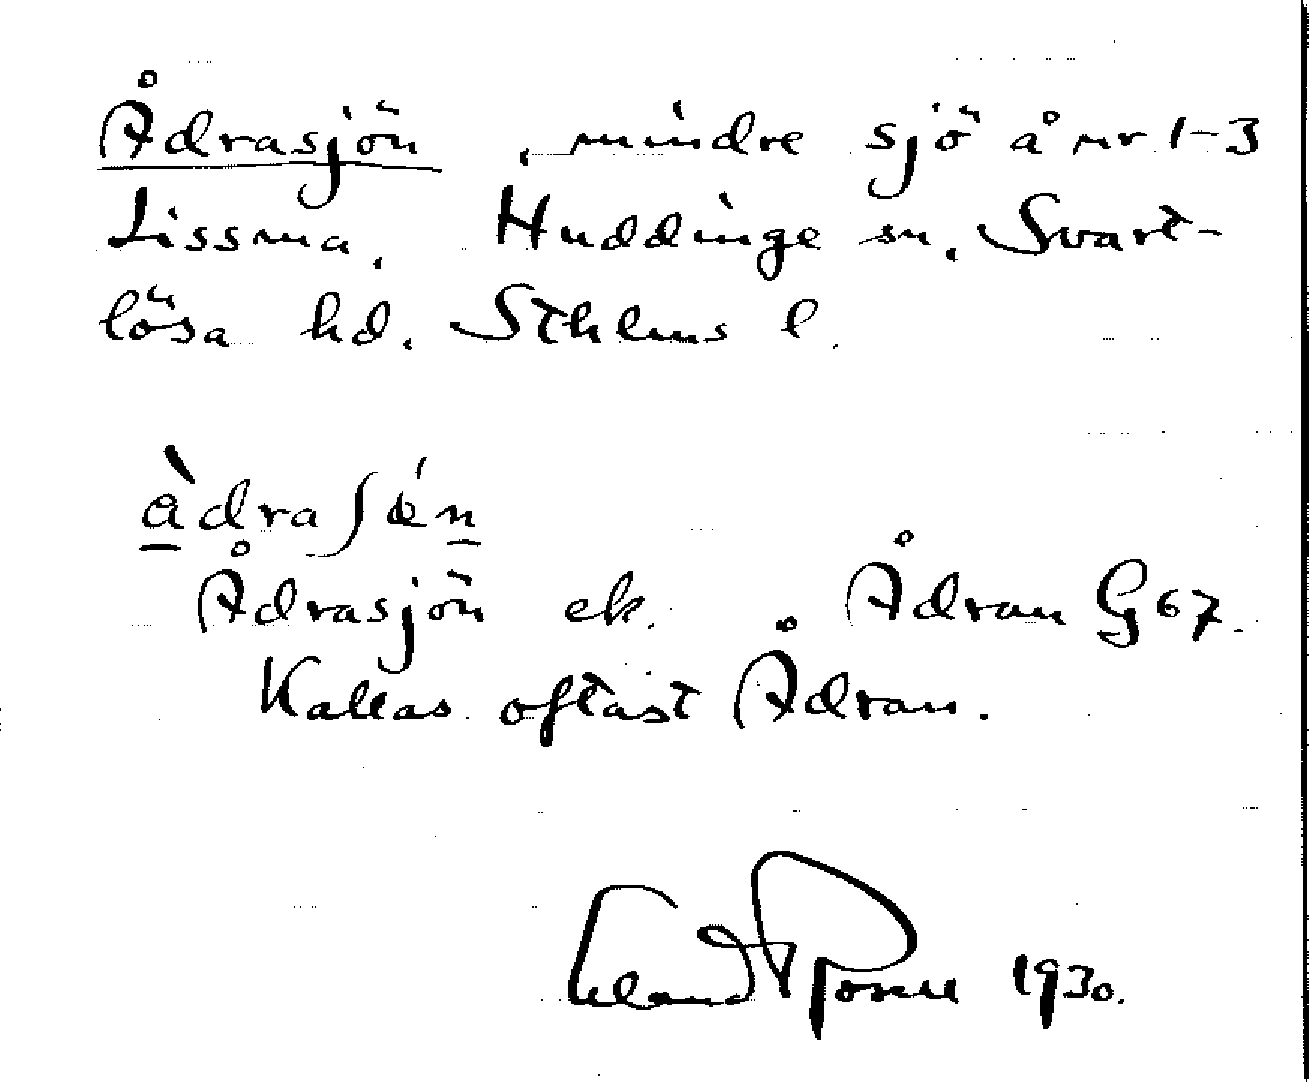 Ådrasjön, mindre sjö å nr 1-3
Lissma, Huddinge sn, Svart-
lösa hd. Sthlms l.
Ådrasjön ek. Ådran G67.
Kallas oftast Ådran.
1930.